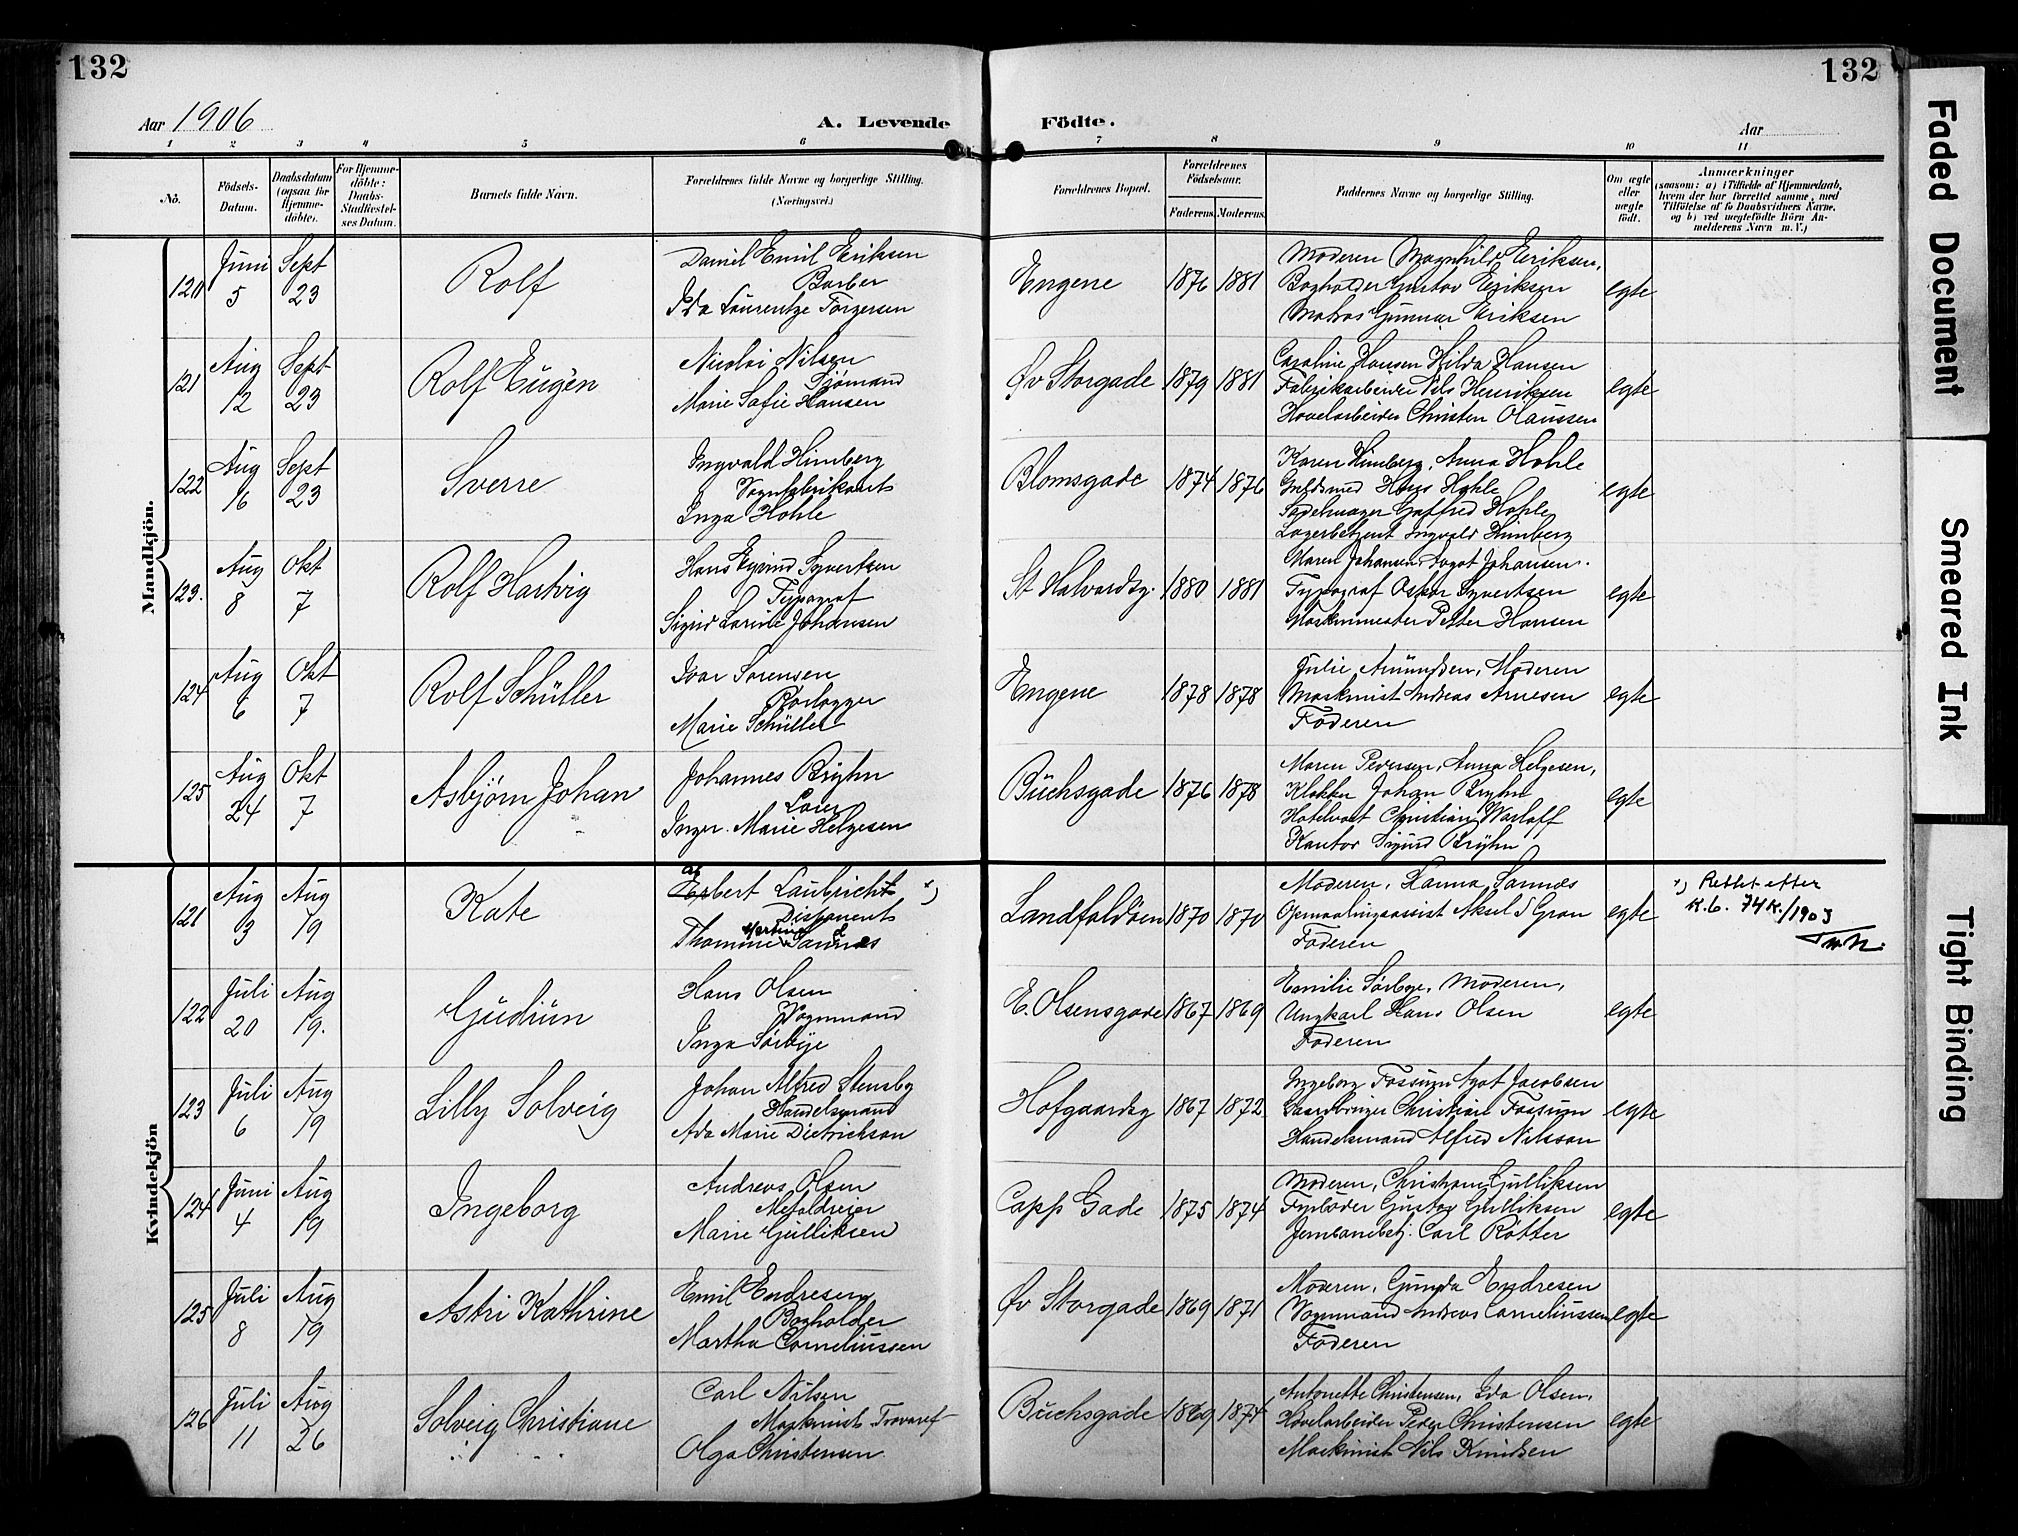 132
132
Aar 1906
A. Levende Födte.
Aar
1 2 3 4 5 6 7 8 9 10 11
No.
Födsels-Datum.
Daabsdatum (ogsaa for Hjemme-döbte).
For Hjemme-döbte: Daabs-Stadfæstel-ses Datum.
Barnets fulde Navn.
Forældrenes fulde Navne og borgerlige Stilling. (Næringsvei.)
Forældrenes Bopæl.
Forældrenes Födselsaar.
Faderens. Moderens.
Faddernes Navne og borgerlige Stilling.
Om ægte eller uægte født.
Anmærkninger (saasom: a) i Tilfælde af Hjemmedaab, hvem der har forrettet samme, med Tilföielse af to Daabsvidners Navne, og b) ved uægtefödte Börn An-melderens Navn m. V.)
Mandkjön.
120 Juni 5 Sept 23 Rolf
Daniel Emil Eriksen
Barber
Ida Laurentze Torgersen
Engene 1876 1881
Moderen Magnhild Eriksen,
Bogholder Gustav Eriksen
Matros Gunnar Eriksen
egte
121 Aug 12 Sept 23 Rolf Eugen
Nicolai Nilsen
Sjømand
Marie Sofie Hansen
Øv Storgade 1879 1881
Caroline Hansen Hilda Hansen
Fabrikarbeider Nils Henriksen
Hovelarbeider Christen Olaussen
egte
122 Aug 16 Sept 23 Sverre
Ingvald Himberg
Vognfabrikant
Inga Hohle
Blomsgade 1874 1876
Karen Himberg, Anna Hohle
Guldsmed Hans Hohle
Sadelmager Gotfred Hohle
Lagerbetjent Ingvald Himberg
egte
123. Aug 8 Okt 7 Rolf Hartvig
Hans Eivind Syvertsen
Typograf
Sigrid Lorine Johansen
St Halvardsg. 1880 1881
Maren Johansen, Aagot Johansen.
Typograf Oskar Syvertsen
Maskinmester Petter Hansen
egte
124 Aug 6 Okt 7 Rolf Schüller
Ivar Sørensen
Rørlægger
Marie Schüller
Engene 1878 1878
Julie Amundsen, Moderen
Maskinist Andreas Arnesen
Faderen
egte
125 Aug 24 Okt 7 Asbjørn Johan
Johannes Bryhn
Inger Marie Helgesen
Buchsgade 1876 1878
Maren Pedersen, Anna Helgesen,
Klokker Johan Bryhn
Hotelvært Christian Warloff
Kantor Sigurd Bryhn
egte
Kvindekjön
121 Aug 3 Aug 19 Kate
Erbert Laubricht x)
Disponent
Thomine Martine Sannæs
Landfaldøen 1870 1870
Moderen, Hanna Sannæs
Opmaalingsassist Aksel S Gran
Faderen
egte
x) Rettet efter
K.b. 74K./1903
122 Juli 20 Aug 19. Gudrun
Hans Olsen
Vognmand
Inga Sørbye
E. Olsensgade 1867 1869
Emilie Sørbye, Moderen,
Ungkarl Hans Olsen
Faderen
egte
123 Juli 6 Aug 19 Lilly Solveig
Johan Alfred Stensby
Handelsmand
Ada Marie Dietrichson
Hofgaardsg 1867 1872
Ingeborg Fossum Agot Jacobsen
Gaardbruger Christian Fossum
Handelsmand Alfred Nilsson
egte
124 Juni 4 Aug 19 Ingeborg
Andreas Olsen
Metaldreier
Marie Gulliksen
Capps Gade 1875 1874
Moderen, Christiane Gulliksen
Fyrbøder Gustav Gulliksen
Jernbanebetj. Carl Rotter
egte
125 Juli 8 Aug 19 Astri Kathrine
Emil Endresen
Bogholder
Martha Corneliussen
Øv Storgade 1869 1871
Moderen, Gunda Endresen
Vognmand Andreas Corneliussen
Faderen
egte
126 Juli 11 Aug 26 Solveig Christiane
Carl Nilsen
Maskinist Travaref
Olga Christensen
Buchsgade 1869 1874
Antonette Christensen, Ida Olsen,
Hövelarbeider Peder Christensen
Maskinist Nils Knudsen
egte
Faded Document
Smeared Ink
Tight Binding